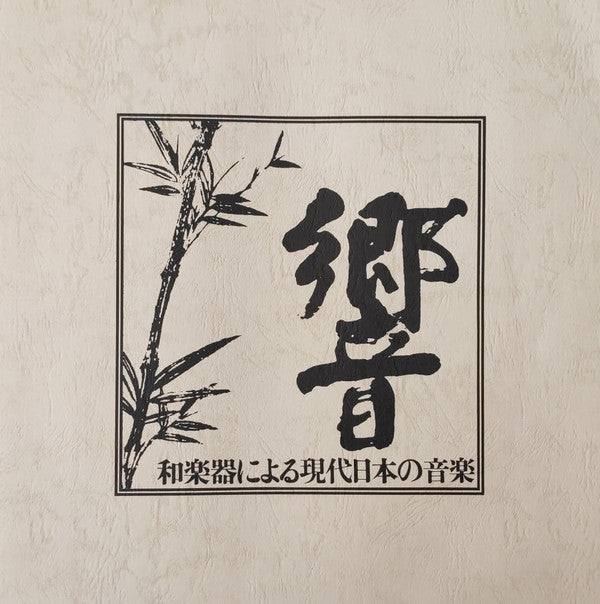 響
和楽器による現代日本の音楽